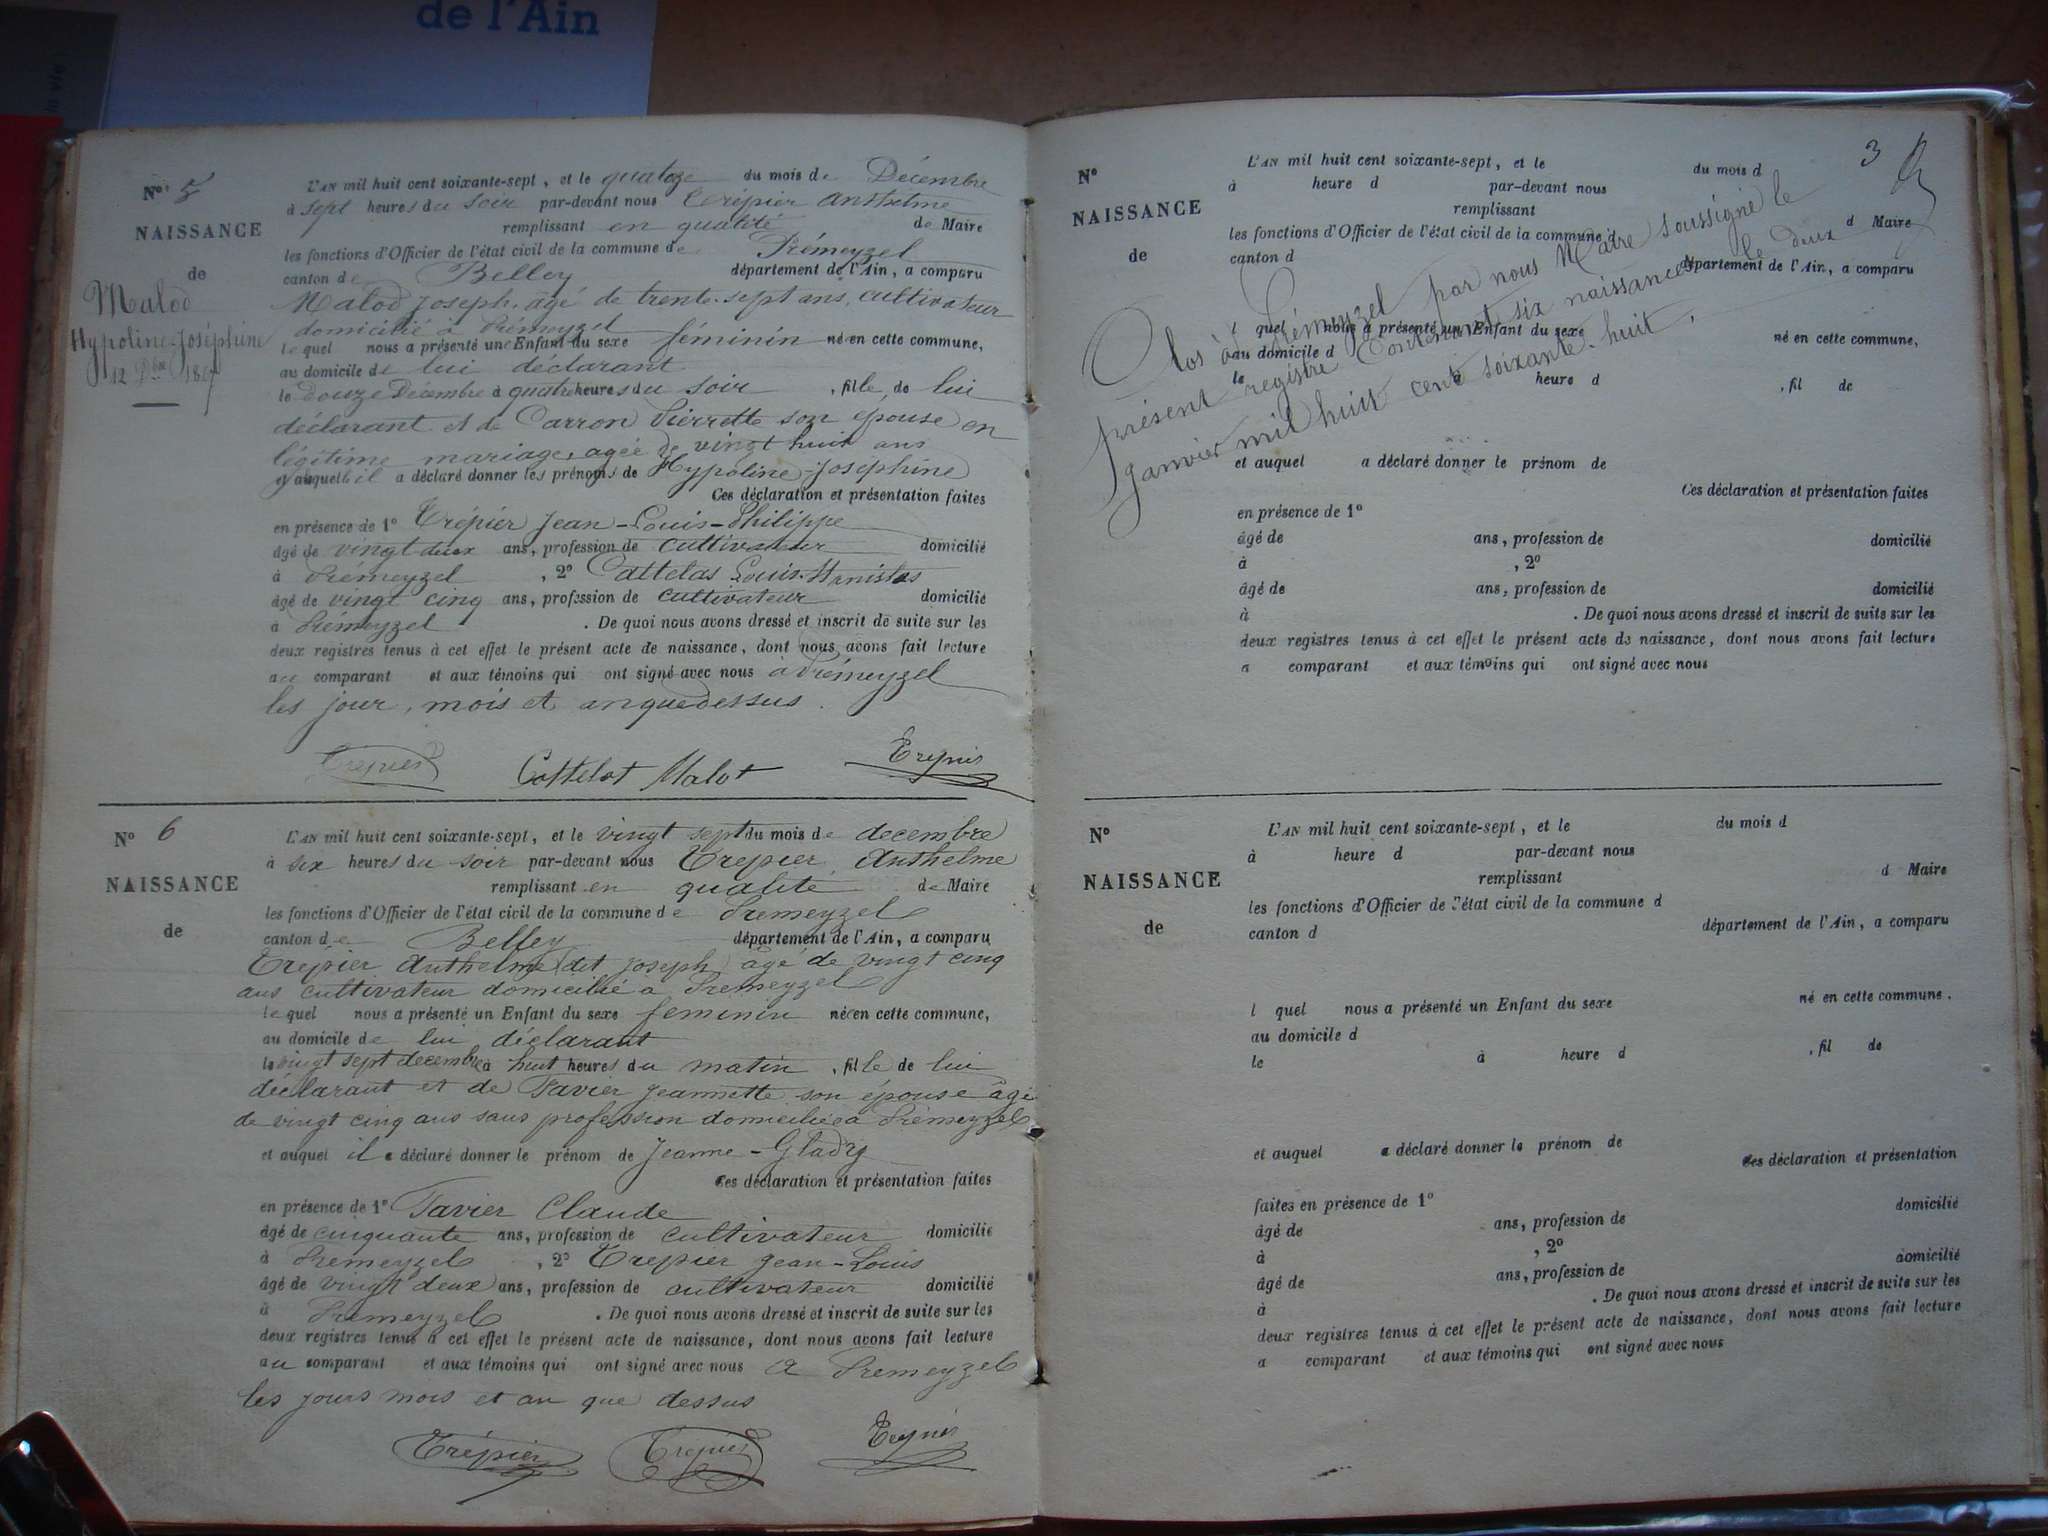 de l'Ain
la vie
N° 5
NAISSANCE
de
Malod
Hypoline-Joséphine
12 Xbre 1867
L'AN mil huit cent soixante-sept, et le quatoze du mois de Décembre
à sept heures du soir par-devant nous Trépier Anthelme
remplissant en qualité de Maire
les fonctions d'Officier de l'état civil de la commune de Prémeyzel
canton de Belley département de l'Ain, a comparu
Malod Joseph, agé de trente-sept ans, cultivateur
domicilié à Prémeyzel
lequel nous a présenté une Enfant du sexe féminin né en cette commune,
au domicile de lui déclarant
le Douze Décembre à quatre heures du soir, fille de lui
déclarant et de Carron Pierrette son épouse en
légitime mariage, agée de vingt huit ans
auquel il a déclaré donner les prénoms de Hypoline-Josephine
Ces déclaration et présentation faites
en présence de 1° Trépier Jean-Louis-Philippe
âgé de vingt deux ans, profession de cultivateur domicilié
à Prémeyzel, 2° Cattelas Louis-Stanislas
âgé de vingt cinq ans, profession de cultivateur domicilié
à Prémeyzel. De quoi nous avons dressé et inscrit de suite sur les
deux registres tenus à cet effet le présent acte de naissance, dont nous avons fait lecture
au comparant et aux témoins qui ont signé avec nous à Prémeyzel
les jour, mois et an que dessus.
Trepier Cattelat Malot Trepier
N° 6
NAISSANCE
de
L'AN mil huit cent soixante-sept, et le vingt sept du mois de decembre
à six heures du soir par-devant nous Trepier Anthelme
remplissant en qualité de Maire
les fonctions d'Officier de l'état civil de la commune de Premeyzel
canton de Belley département de l'Ain, a comparu
Trepier Anthelme (dit Joseph) âgé de vingt cinq
ans cultivateur domicilié a Premeyzel
lequel nous a présenté un Enfant du sexe feminin né en cette commune,
au domicile de lui déclarant
le vingt sept decembre à huit heures du matin, fille de lui
déclarant et de Tavier Jeannette son épouse âgé
de vingt cinq ans sans profession domicilié a Prémeyzel
et auquel il a déclaré donner le prénom de Jeanne-Gladry
Ces déclaration et présentation faites
en présence de 1° Tavier Claude
âgé de cinquante ans, profession de cultivateur domicilié
à Premeyzel, 2° Trepier Jean-Louis
âgé de vingt deux ans, profession de cultivateur domicilié
à Premeyzel. De quoi nous avons dressé et inscrit de suite sur les
deux registres tenus à cet effet le présent acte de naissance, dont nous avons fait lecture
au comparant et aux témoins qui ont signé avec nous a Premeyzel
les jours mois et an que dessus
Trépier Trepier Trepier
3
N°
NAISSANCE
de
L'AN mil huit cent soixante-sept, et le du mois d
à heure d par-devant nous
remplissant d Maire
les fonctions d'Officier de l'état civil de la commune d
canton d département de l'Ain, a comparu
l quel nous a présenté un Enfant du sexe né en cette commune,
au domicile d
le à heure d, fil de
Clos à Prémeyzel par nous Maire soussigné le
présent registre Contenant six naissances le deux
janvier mil huit cent soixante-huit.
et auquel a déclaré donner le prénom de
Ces déclaration et présentation faites
en présence de 1°
âgé de ans, profession de domicilié
à, 2°
âgé de ans, profession de domicilié
à. De quoi nous avons dressé et inscrit de suite sur les
deux registres tenus à cet effet le présent acte de naissance, dont nous avons fait lecture
a comparant et aux témoins qui ont signé avec nous
N°
NAISSANCE
de
L'AN mil huit cent soixante-sept, et le du mois d
à heure d par-devant nous
remplissant d Maire
les fonctions d'Officier de l'état civil de la commune d
canton d département de l'Ain, a comparu
l quel nous a présenté un Enfant du sexe né en cette commune.
au domicile d
le à heure d, fil de
et auquel a déclaré donner le prénom de
Ces déclaration et présentation
faites en présence de 1°
âgé de ans, profession de domicilié
à, 2°
âgé de ans, profession de domicilié
à. De quoi nous avons dressé et inscrit de suite sur les
deux registres tenus à cet effet le présent acte de naissance, dont nous avons fait lecture
a comparant et aux témoins qui ont signé avec nous